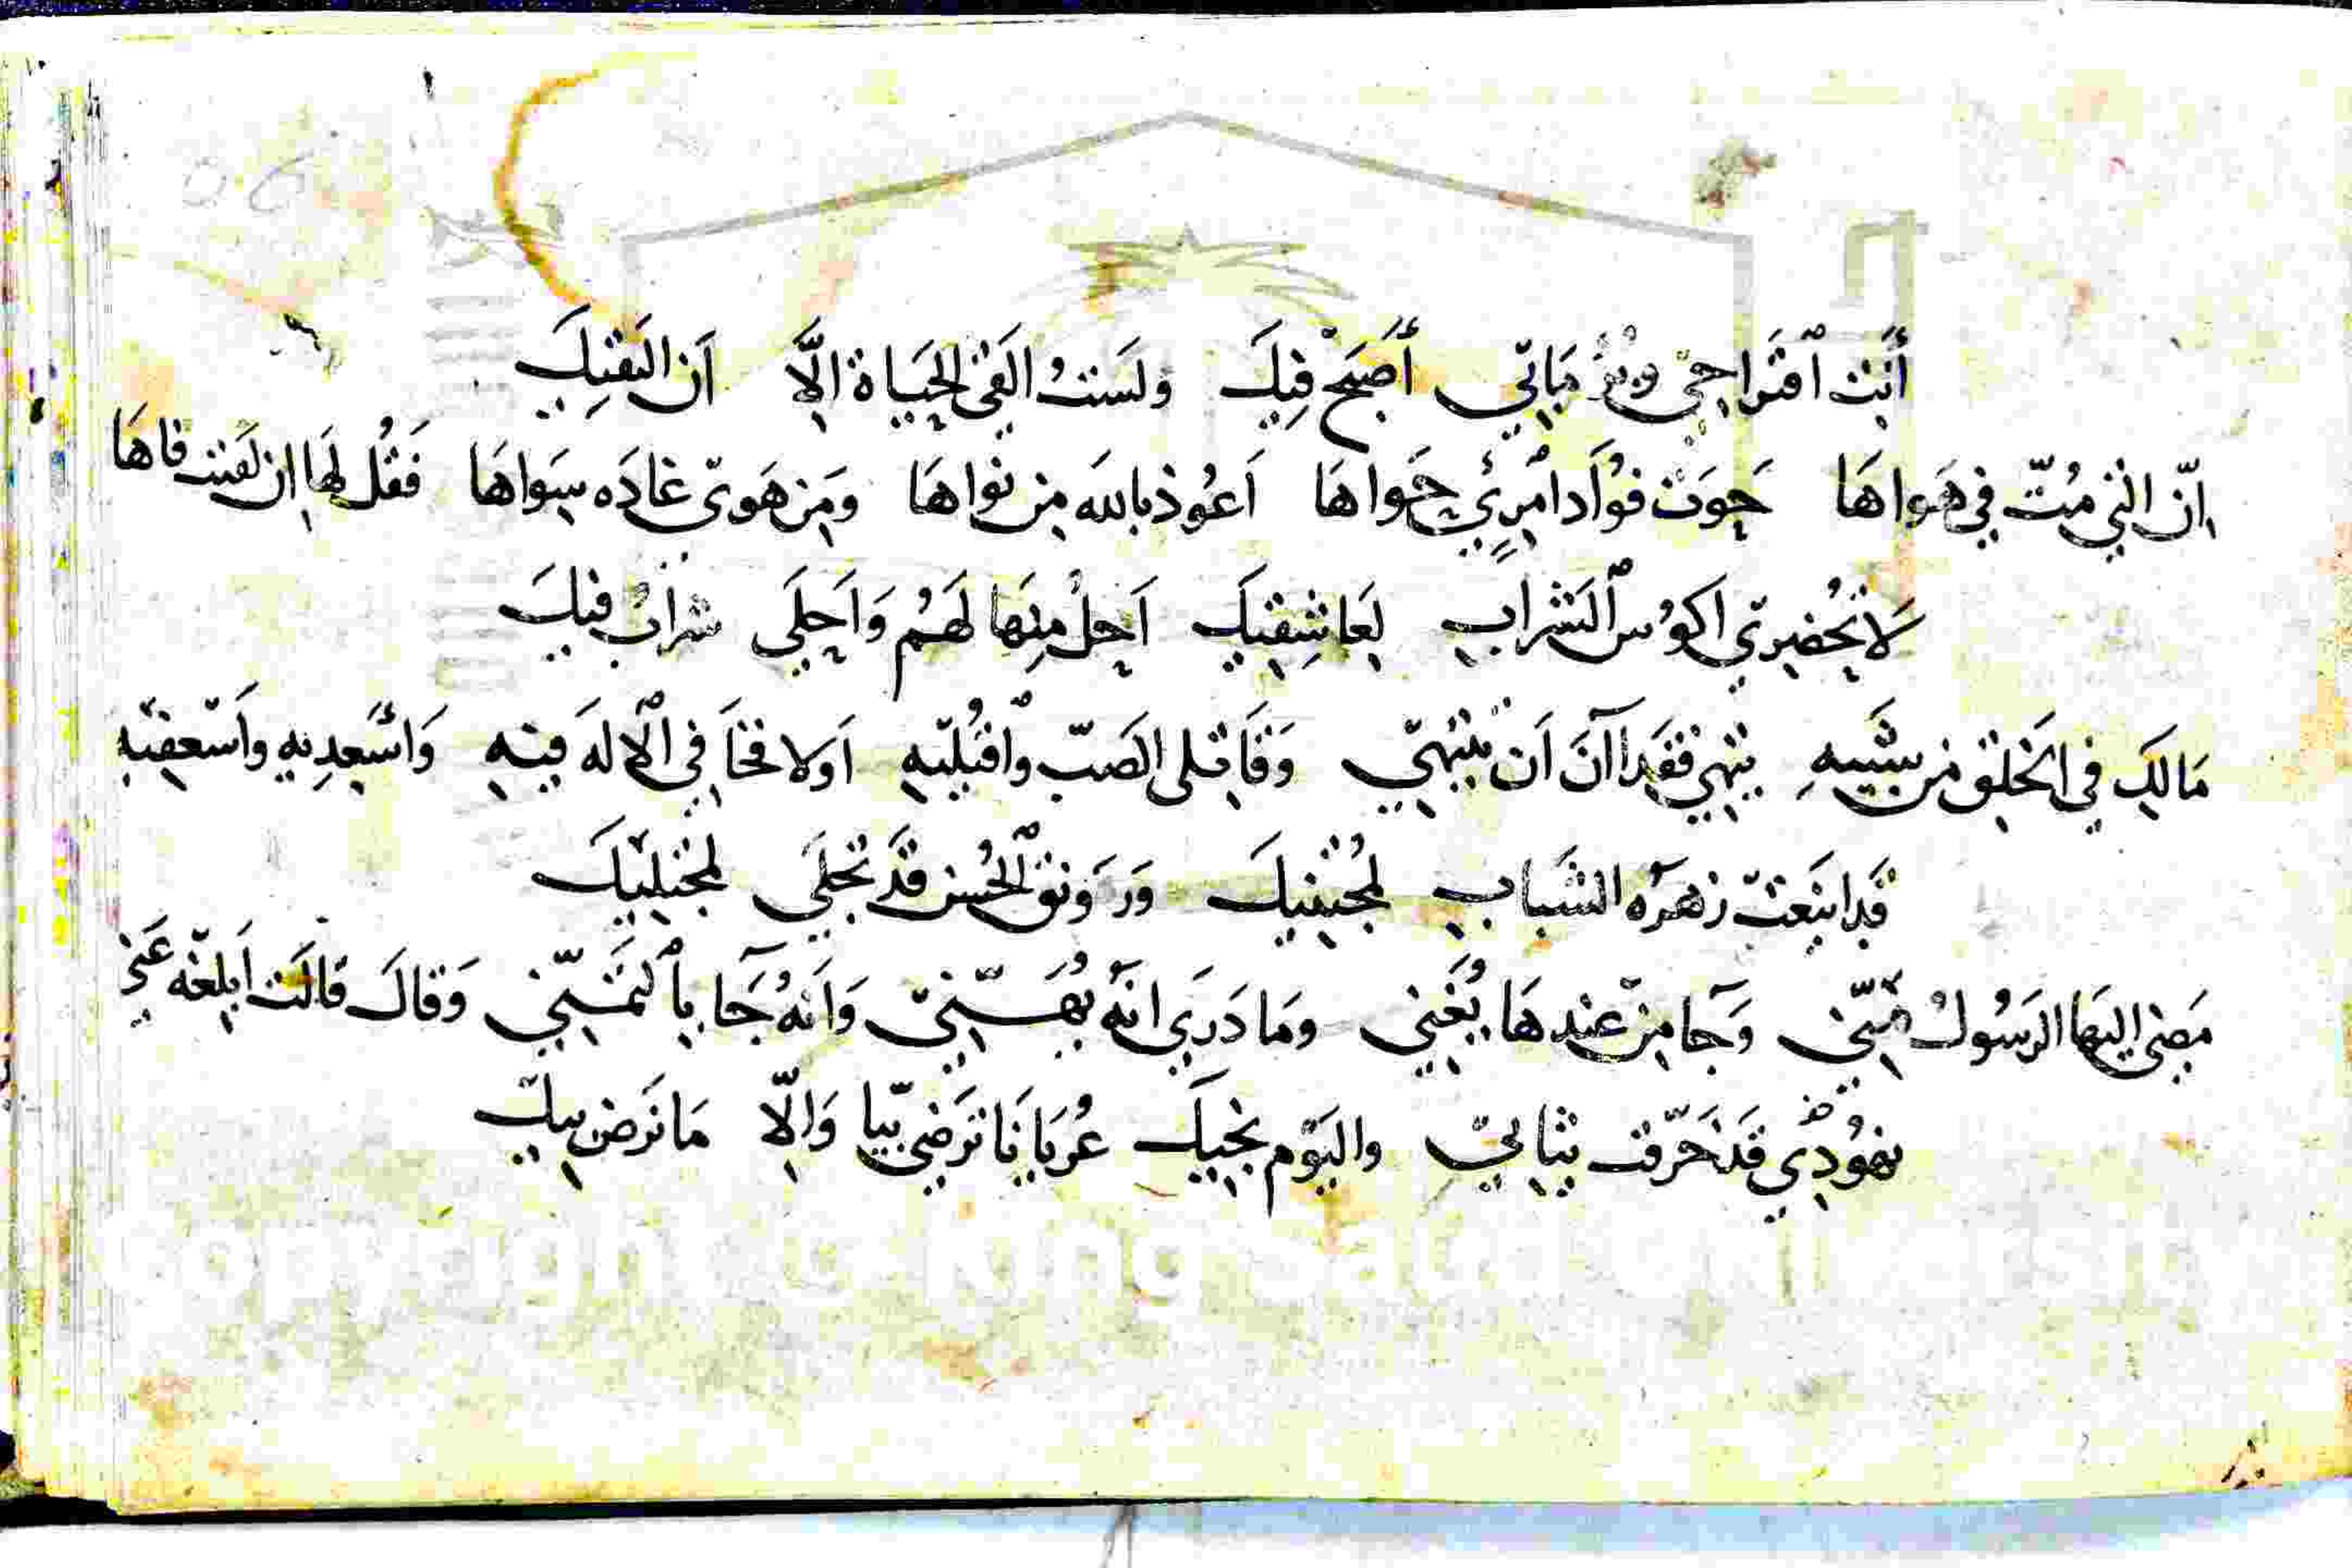 أَنْتَ ٱقتراحي وفي مماتي أَصبَح فيكَ ولَستُ القى الحَيَاة الَّا اَن التقيكَ
اِنّ التي مُتّ في هَواهَا حَوَت فؤاد امرئٍ حَواهَا اَعُوذ بالله مِن نواهَا وَمَن هَوىّ غادَه سِوَاهَا فَقُل لهَا ان لقيت فاهَا
لَا تُحْضِريّ اكؤس ٱلشَراب لِعَاشِقيكِ اَحِلُ مِنهَا لَهُم وَاَحلَى شرابُ فيكَ
مَالَكِ في الخَلِق مِن شَبيهِ تِيْهي فقَد آنَ اَن تَتِيهيّ وَقَاتلى الصَبّ وٱقبُليّهِ اَولا فخَافي الالهَ فيهِ وَاَسْعِدِيهِ واَسْعفيّهِ
قَد اينَعَتّ زهرَه الشَباب لمُجتنيكَ ورَوَنَق ٱلحُسن قَد تجلَى لمجتليْكَ
مَضى اليهَا الرَسُولُ منّي وَجَا مِن عِندهَا يُغَنِي ومَا دَرَى انّه يُهَنّينيّ وَانَهُ جَآ بِٱلتَمَنّيّ وَقالَ قالَت اَبلغّه عَني
نهوُدِي قَد خَرّقت ثيَابيّ واليَوْم نجيكَ عُريَانَا تَرَضىّ بيّا وَالّا مَا نَرَض بيكّ